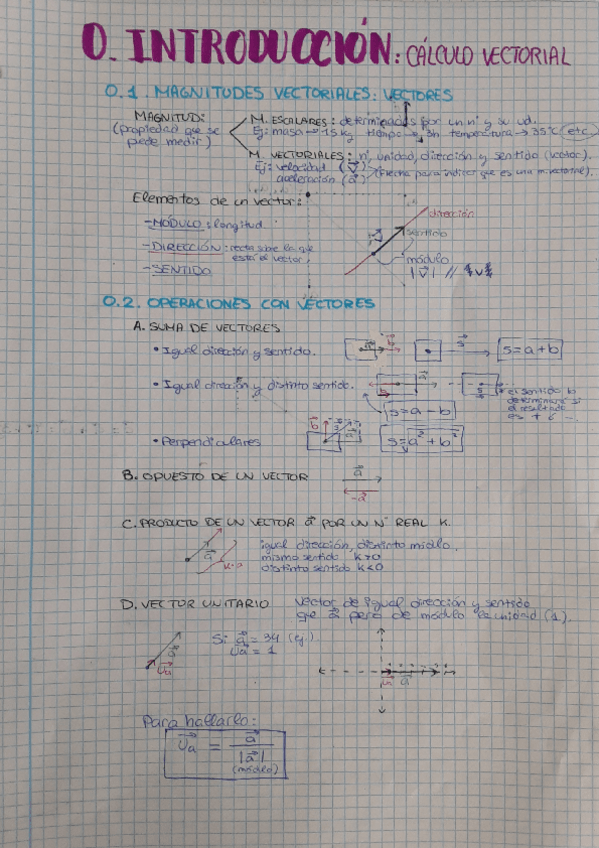 0. INTRODUCCIÓN: CÁLCULO VECTORIAL
0.1. MAGNITUDES VECTORIALES: VECTORES
MAGNITUD:
(propiedad que se
puede medir)
M. ESCALARES: determinadas por un nº y su ud.
Ej: masa → 15kg tiempo → 3h temperatura → 35°C (etc.)
M. VECTORIALES: nº, unidad, dirección y sentido (vector).
Ej: velocidad (v⃗)
aceleración (a⃗)
(Flecha para indicar que es una m. vectorial).
Elementos de un vector:
- MÓDULO: longitud.
- DIRECCIÓN: recta sobre la que
está el vector.
- SENTIDO
dirección
sentido
v⃗
módulo
|v⃗| //
0.2. OPERACIONES CON VECTORES
A. SUMA DE VECTORES
• Igual dirección y sentido.
a⃗ b⃗ s⃗
s = a + b
• Igual dirección y distinto sentido.
b⃗ a⃗ s⃗
s = a - b
* el sentido lo
determinará si
el resultado
es + ó -.
• Perpendiculares
b⃗ s⃗ a⃗
s = √a² + b²
B. OPUESTO DE UN VECTOR
a⃗
-a⃗
C. PRODUCTO DE UN VECTOR a⃗ POR UN Nº REAL K.
a⃗
igual dirección, distinto módulo.
mismo sentido k>0
distinto sentido k<0
D. VECTOR UNITARIO
vector de igual dirección y sentido
que a⃗ pero de módulo la unidad (1).
a⃗
u⃗a
Si a⃗ = 34 (ej.)
u⃗a = 1
u⃗ a⃗
Para hallarlo:
u⃗a = a⃗ / |a⃗|
(módulo)